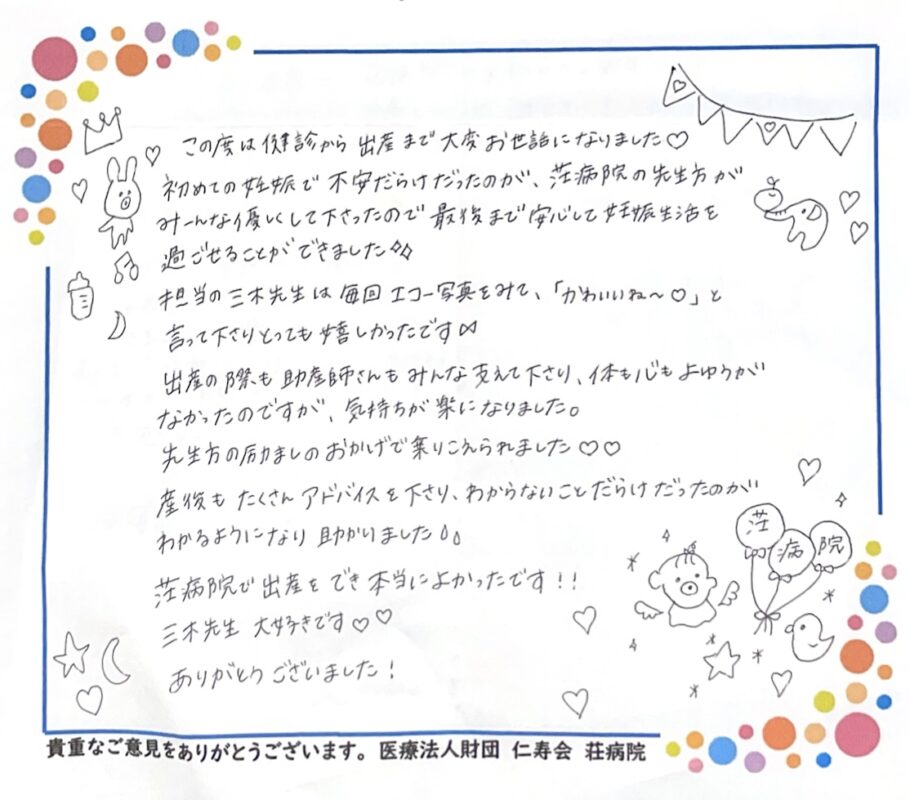 この度は健診から出産まで大変お世話になりました♡
初めての妊娠で不安だらけだったのが、荘病院の先生方が
みーんな優しくして下さったので最後まで安心して妊娠生活を
過ごせることができました
担当の三木先生は毎回エコー写真をみて、「かわいいね〜♡」と
言って下さりとっても嬉しかったです
出産の際も助産師さんもみんな支えて下さり、体も心もよゆうが
なかったのですが、気持ちが楽になりました。
先生方の励ましのおかげで乗りこえられました♡♡
産後もたくさんアドバイスを下さり、わからないことだらけだったのが
わかるようになり助かりました
荘病院で出産をでき本当によかったです!!
三木先生大好きです♡♡
ありがとうございました!
荘病院
貴重なご意見をありがとうございます。医療法人財団 仁寿会 荘病院